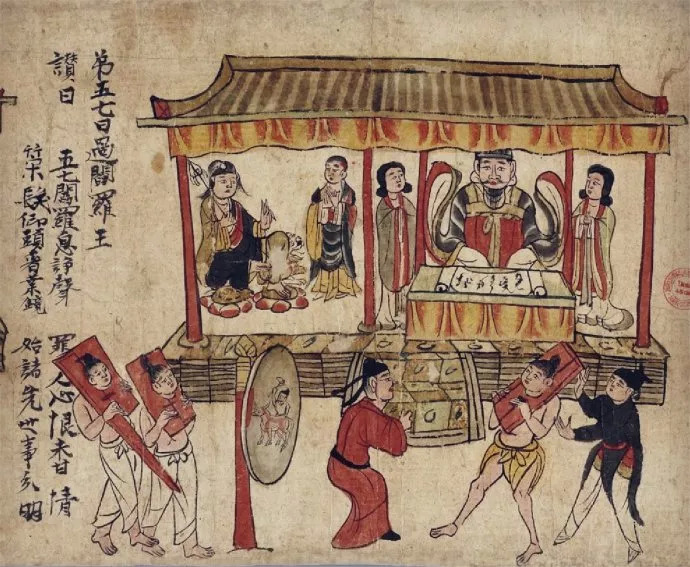 弟五七日過閻羅王
讚曰 五七閻羅息諍聲 罪人心恨未甘情
策髮仰頭看業鏡 始諸先世事分明